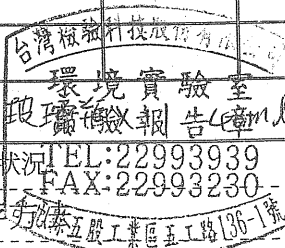 台灣檢驗科技股份有限公司
環境實驗室
報告
狀況
TEL:22993939
FAX:22993230
五股工業區五工路136-1號